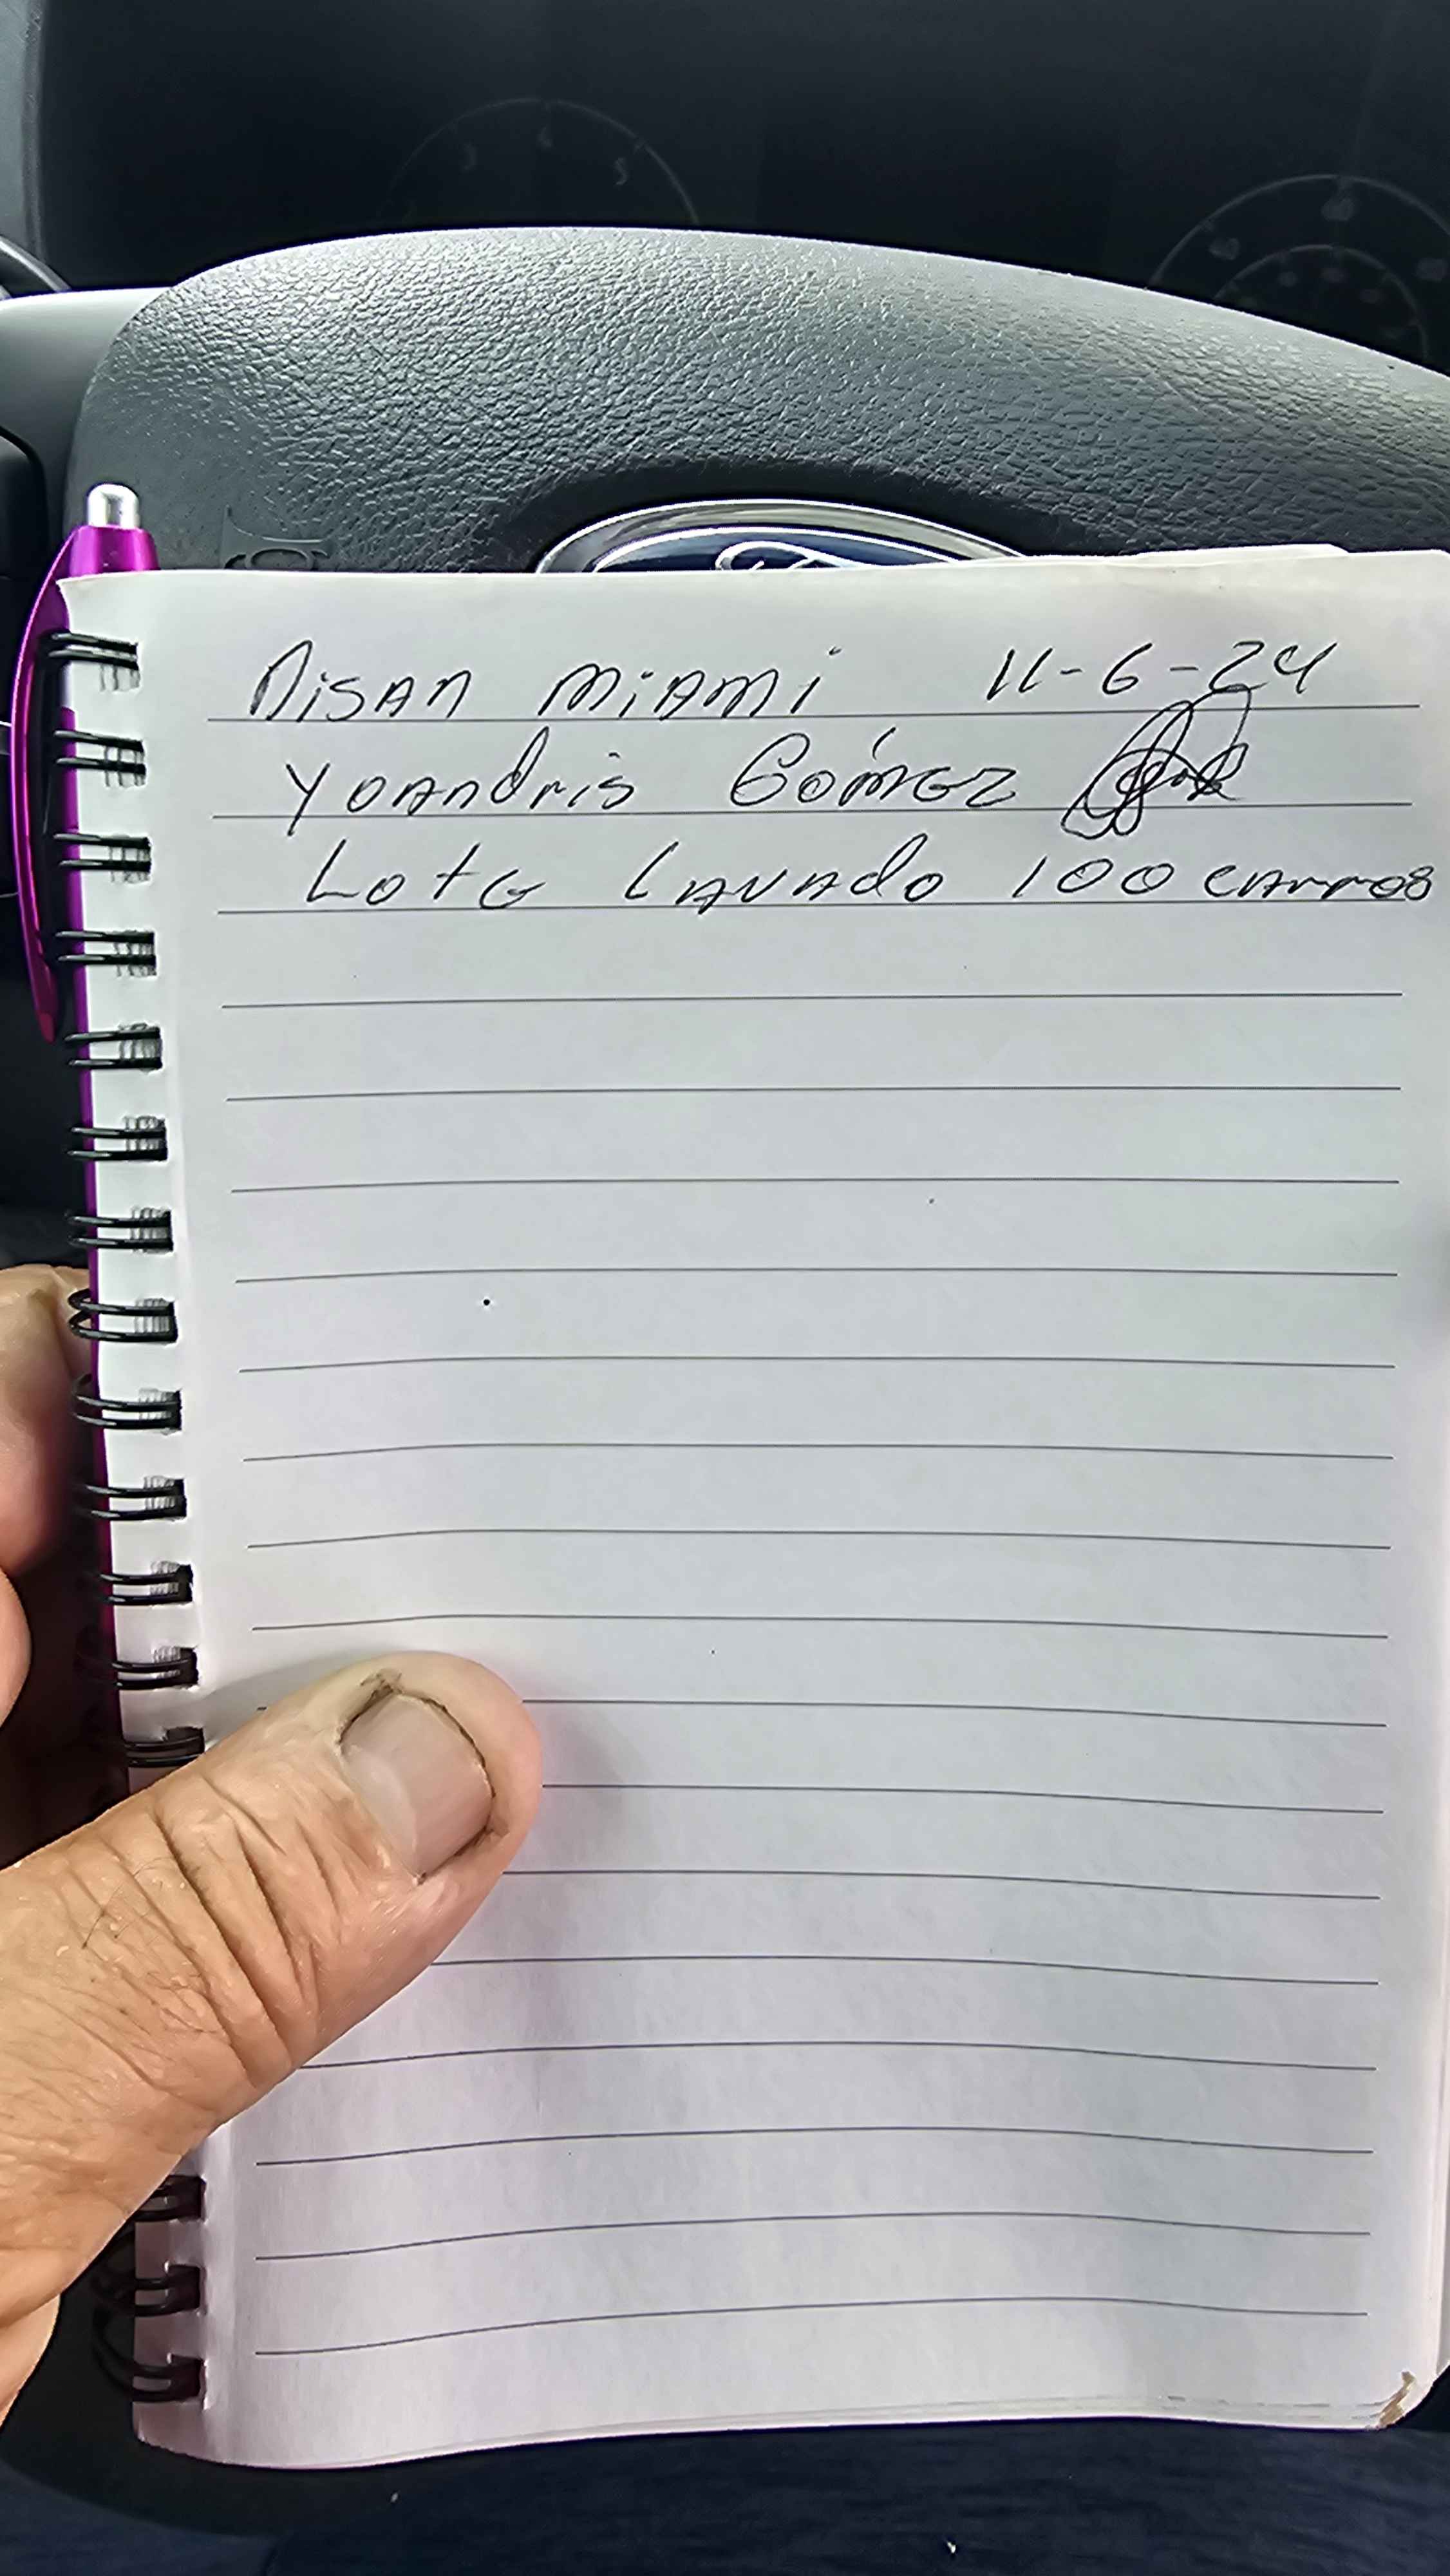 Nisan Miami 11-6-24
Yoandris Gómez
Lote Lavado 100 carros